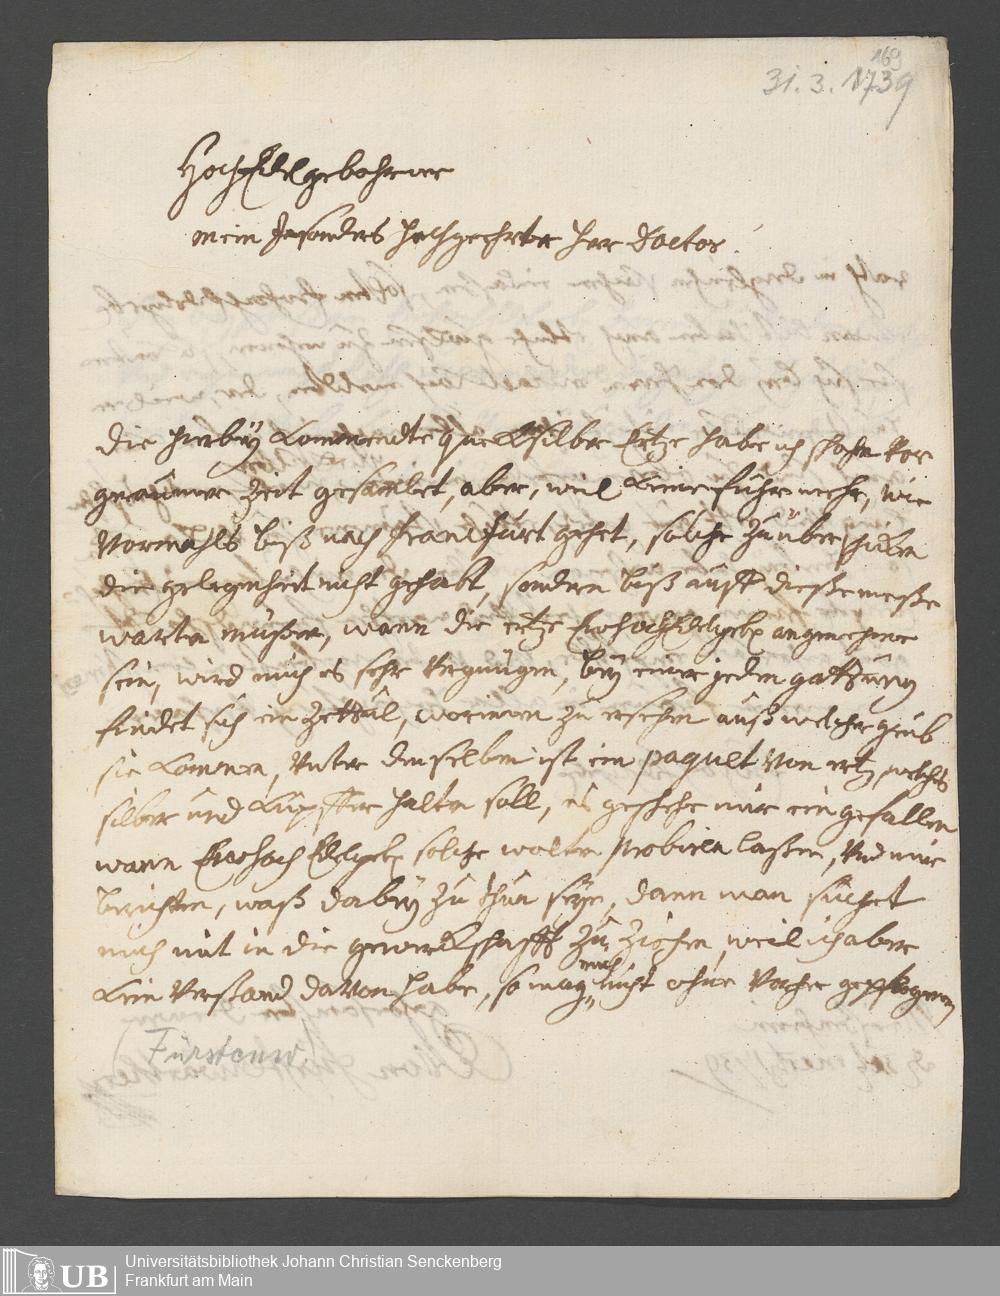 169
31. 3. 1739
HochEdelgebohrner
mein besonders hochgeehrter Herr Doctor!
die hierbey kommendte queckhsilber Ertze habe ich schohn vor
geraumer Zeit gesamlet, aber, weil keine fuhr mehr, wie
vormahls biß nach franckfurt gehet, solche zu überschicken
die gelegenheit nicht gehabt, sondern biß auff dieße meße
warten müßen, wann die ertze Ewhochedelgeb angenehme
sein, wird mich es sehr vergnügen, bey einer jeden gattung
findet sich ein Zettul, worinnen zu ersehen auß welcher grub
sie kommen, unter denselben ist ein paquet von ertz welches
silber und kupffer halten soll, es geschehe mir ein gefallen
wann Ewhoch Edelgeb solche wolten probieren laßen, und mir
berichten, waß dabey zu thun seye, dann man suchet
mich mit in die gewerckschafft zu ziehen, weil ich aber
kein verstand davon habe, so mag mich nicht ohne vorher gepflogenen
Fürstenw.
Universitätsbibliothek Johann Christian Senckenberg
Frankfurt am Main
UB